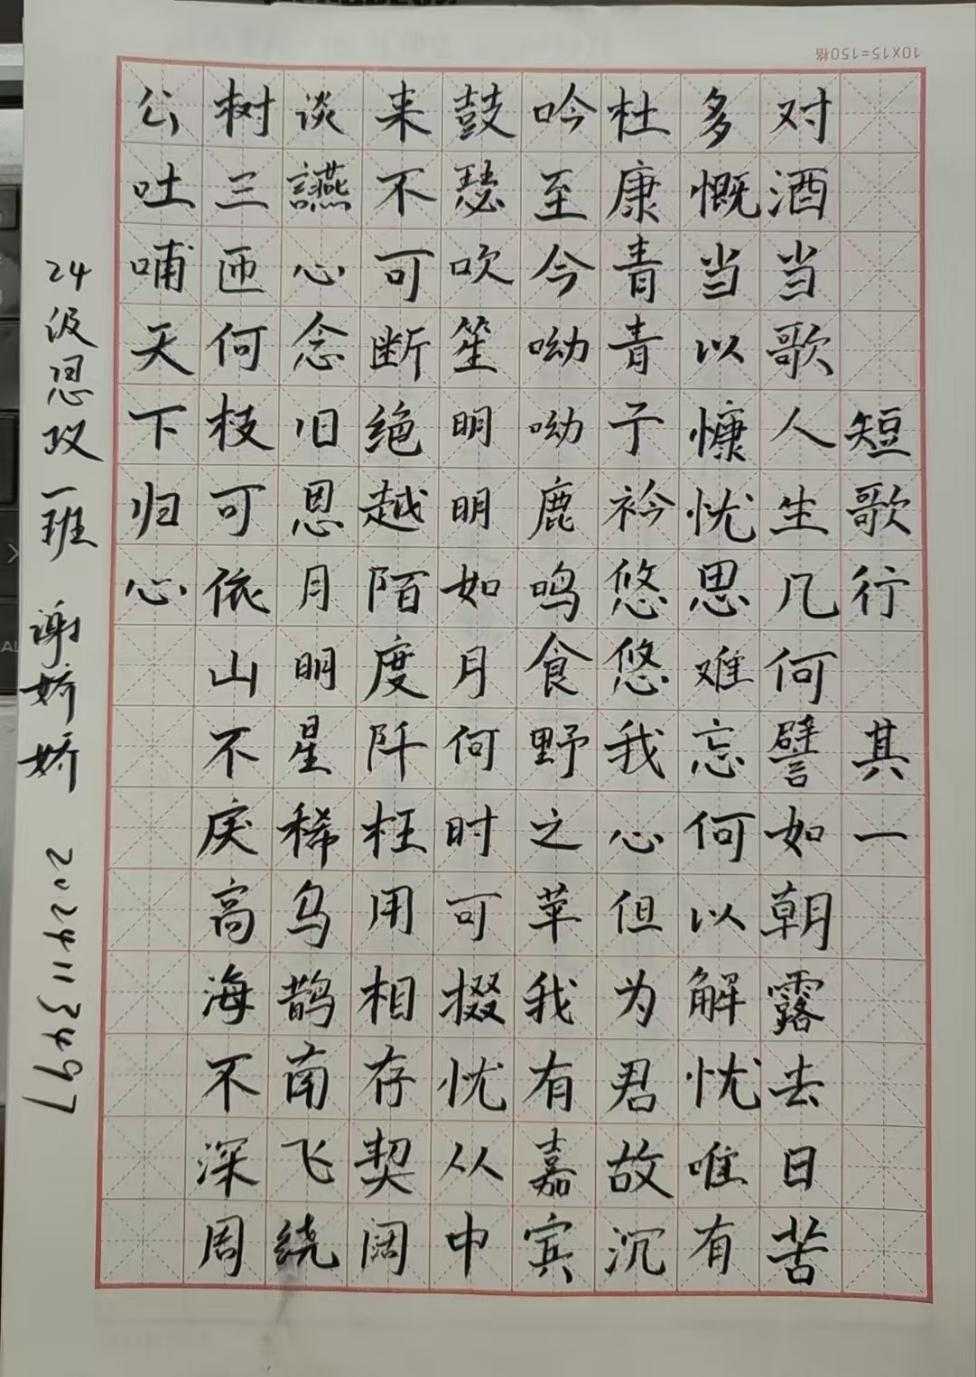 10X15=150格
短歌行 其一
对酒当歌人生几何譬如朝露去日苦
多慨当以慷忧思难忘何以解忧唯有
杜康青青子衿悠悠我心但为君故沉
吟至今呦呦鹿鸣食野之苹我有嘉宾
鼓瑟吹笙明明如月何时可掇忧从中
来不可断绝越陌度阡枉用相存契阔
谈讌心念旧恩月明星稀乌鹊南飞绕
树三匝何枝可依山不厌高海不深周
公吐哺天下归心
24级思政一班 谢娇娇 2024113497